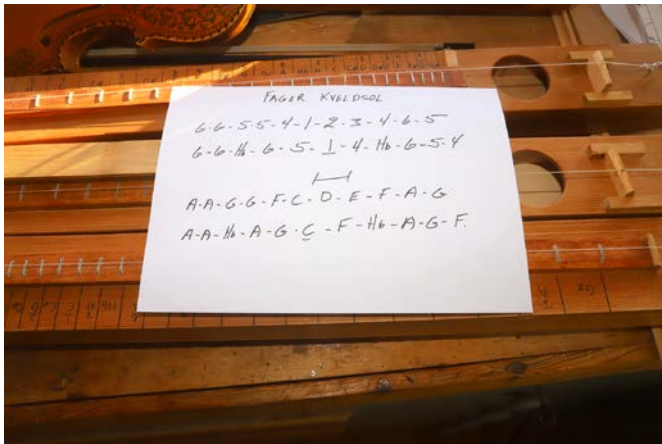 FAGER KVELDSOL
6-6-5-5-4-1-2-3-4-6-5
6-6-Hb-6-5-1-4-Hb-6-5-4
A-A-G-G-F-C-D-E-F-A-G
A-A-Hb-A-G-C-F-Hb-A-G-F.